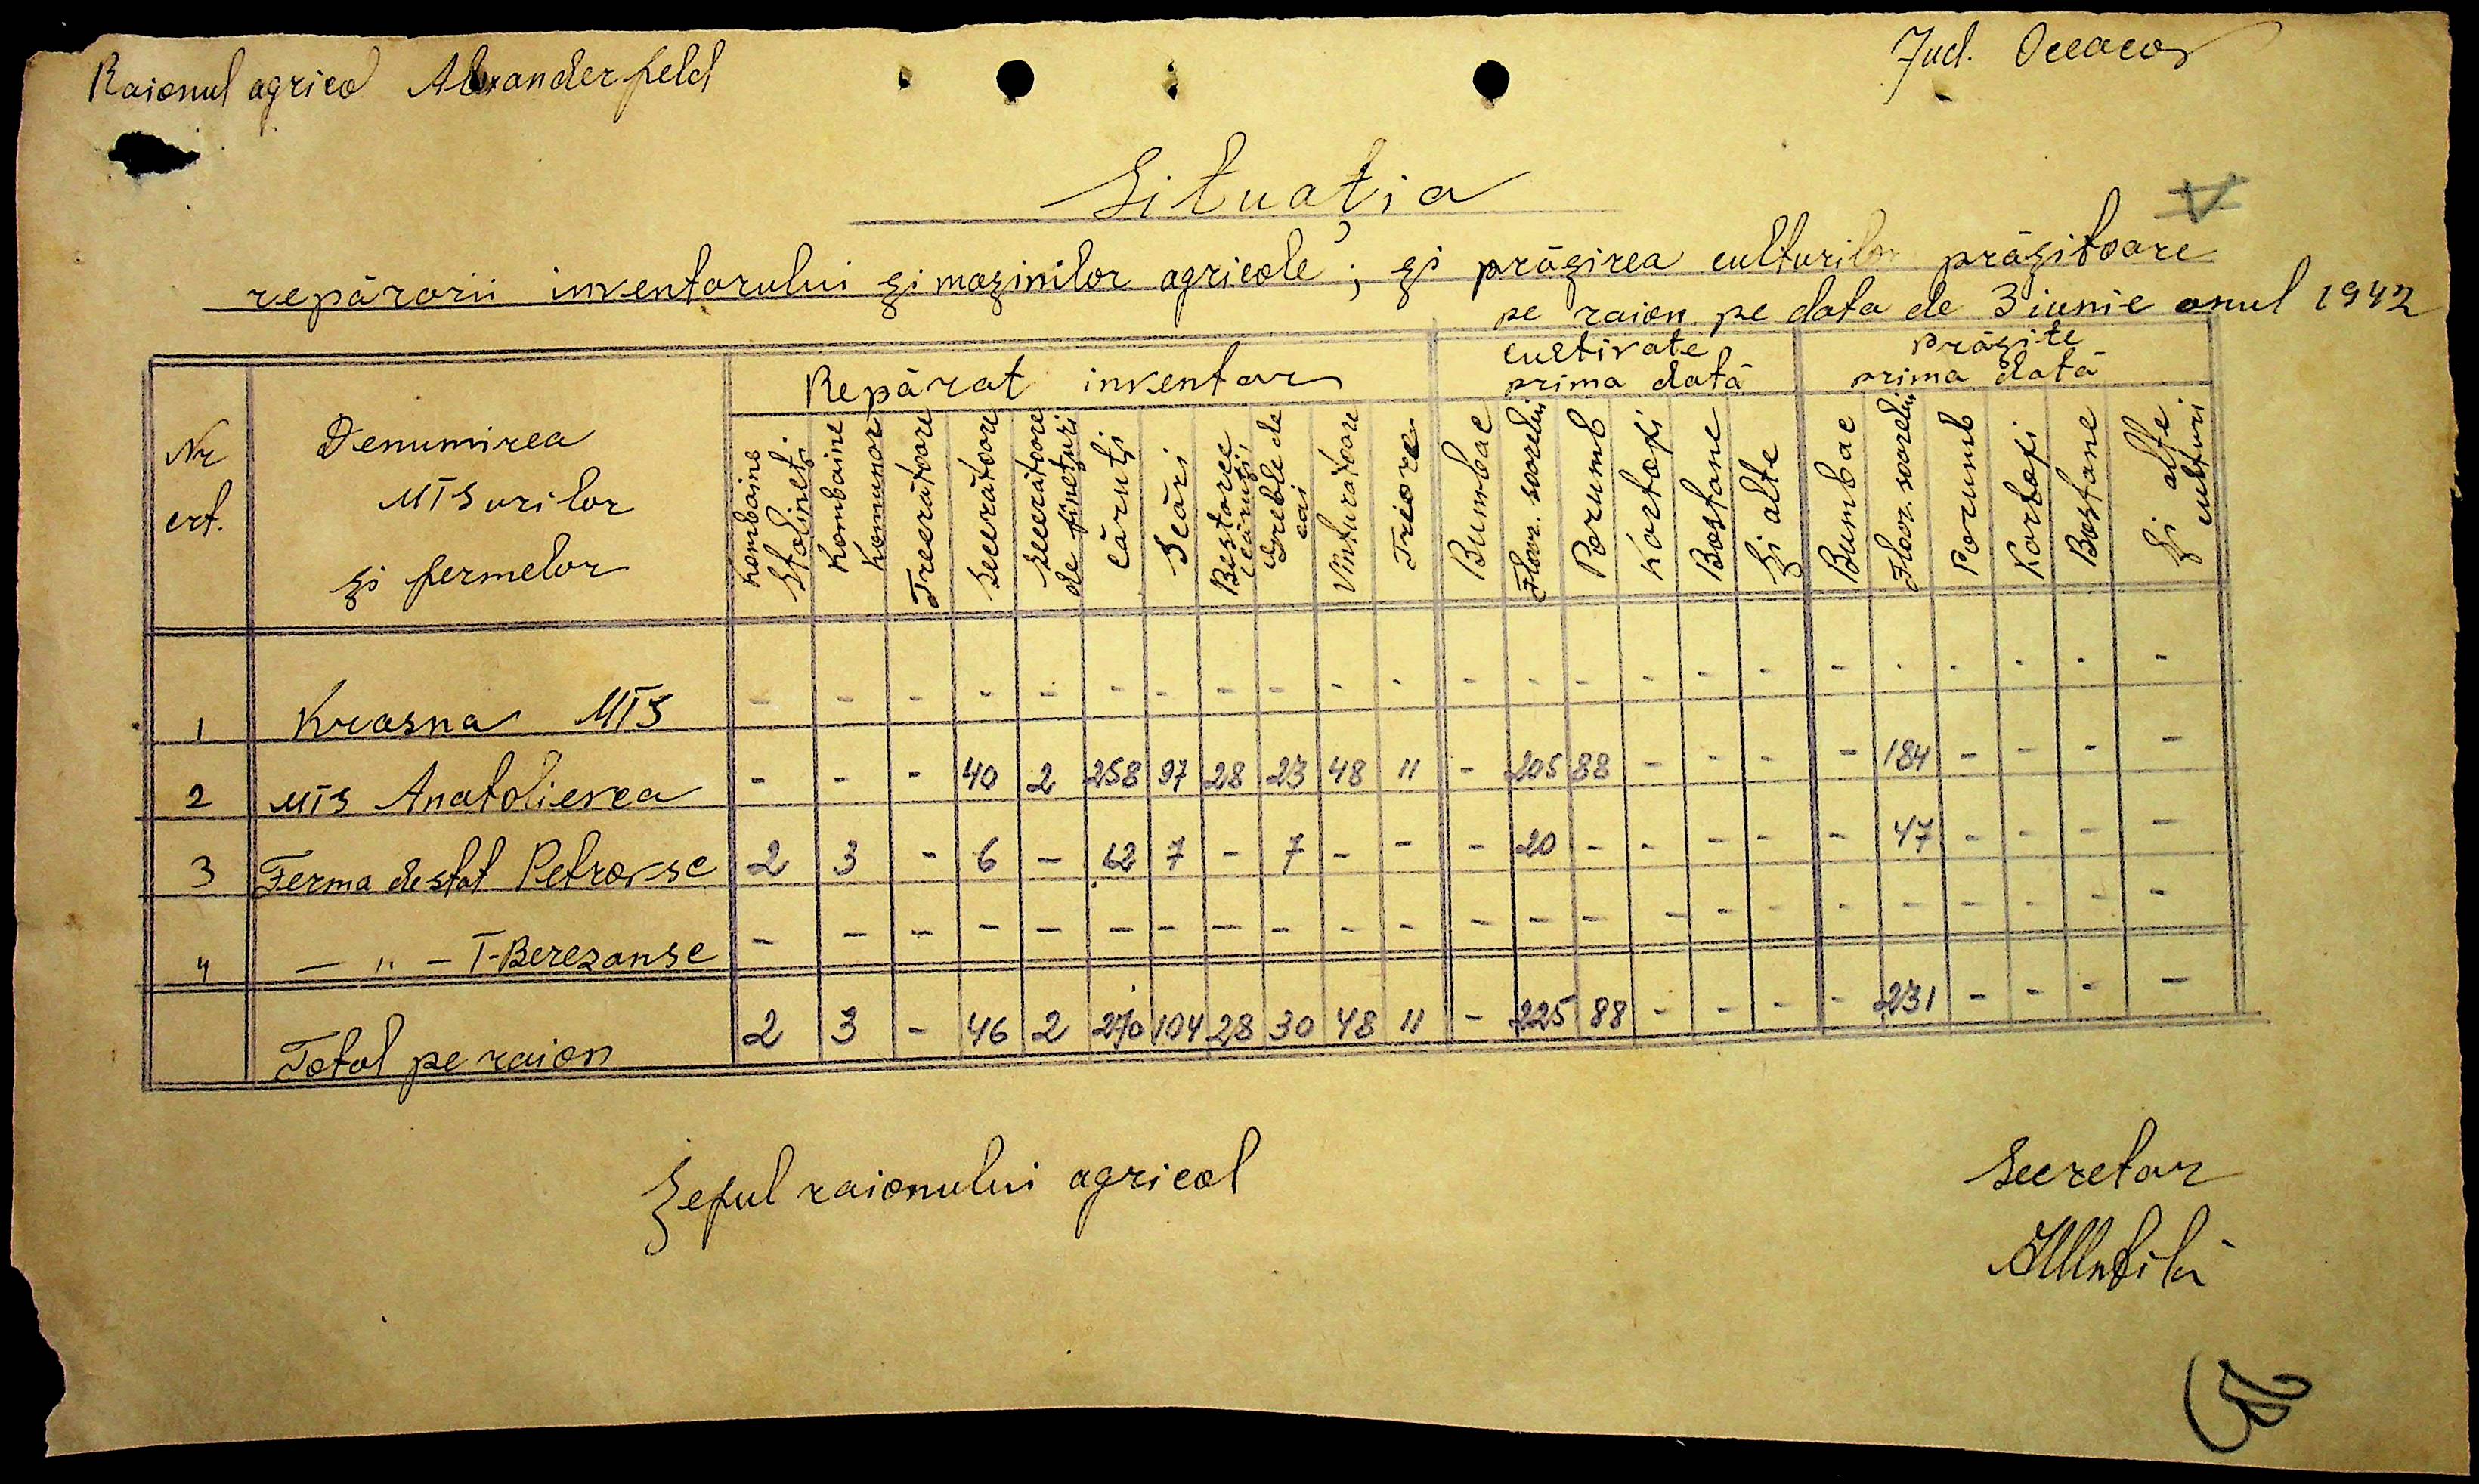 Raionul agricol Alexanderfeld
Jud. Oceacov
Situaţia
repărarii inventarului şi maşinilor agricole; şi prăşirea culturilor prăşitoare
pe raion pe data de 3 iunie anul 1942
Nr crt. | Denumirea MTSurilor şi fermelor | Repărat inventar | cultivate prima dată | prăşite prima dată
kombaine Stalineţi. | kombaine komunar | Treerătoare | secerătoare | secerătoare de fineţuri | căruţi | Scări | Bestarce (căruţi) | Greble de cai | Vinturătoare | Triore | Bumbac | Floar. soarelui | Porumb | Kartofi | Bostane | şi alte | Bumbac | Floar. soarelui | Porumb | Kartofi | Bostane | şi alte culturi
1 Krasna MTS - - - - - - - - - - - - - - - - - - - - - - -
2 MTS Anatolievca - - - 40 2 258 97 28 23 48 11 - 205 88 - - - - 184 - - - -
3 Ferma de stat Petrovsc 2 3 - 6 - 12 7 - 7 - - - 20 - - - - - 47 - - - -
4 — " — T-Berezansc - - - - - - - - - - - - - - - - - - - - - - -
Total pe raion 2 3 - 46 2 270 104 28 30 48 11 - 225 88 - - - - 231 - - - -
Şeful raionului agricol
Secretar